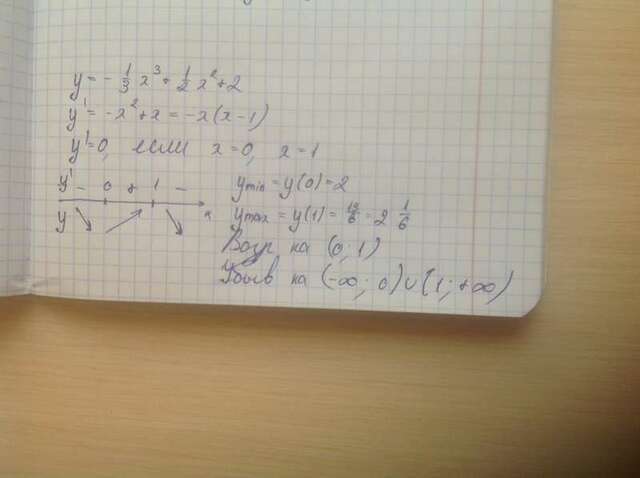 y = - 1/3 x³ + 1/2 x² + 2
y' = - x² + x = - x(x-1)
y' = 0, если x = 0, x = 1
y' - 0 + 1 - x
y
ymin = y(0) = 2
ymax = y(1) = 13/6 = 2 1/6
Возр на (0; 1)
Убыв на (-∞; 0) ∪ [1; +∞)